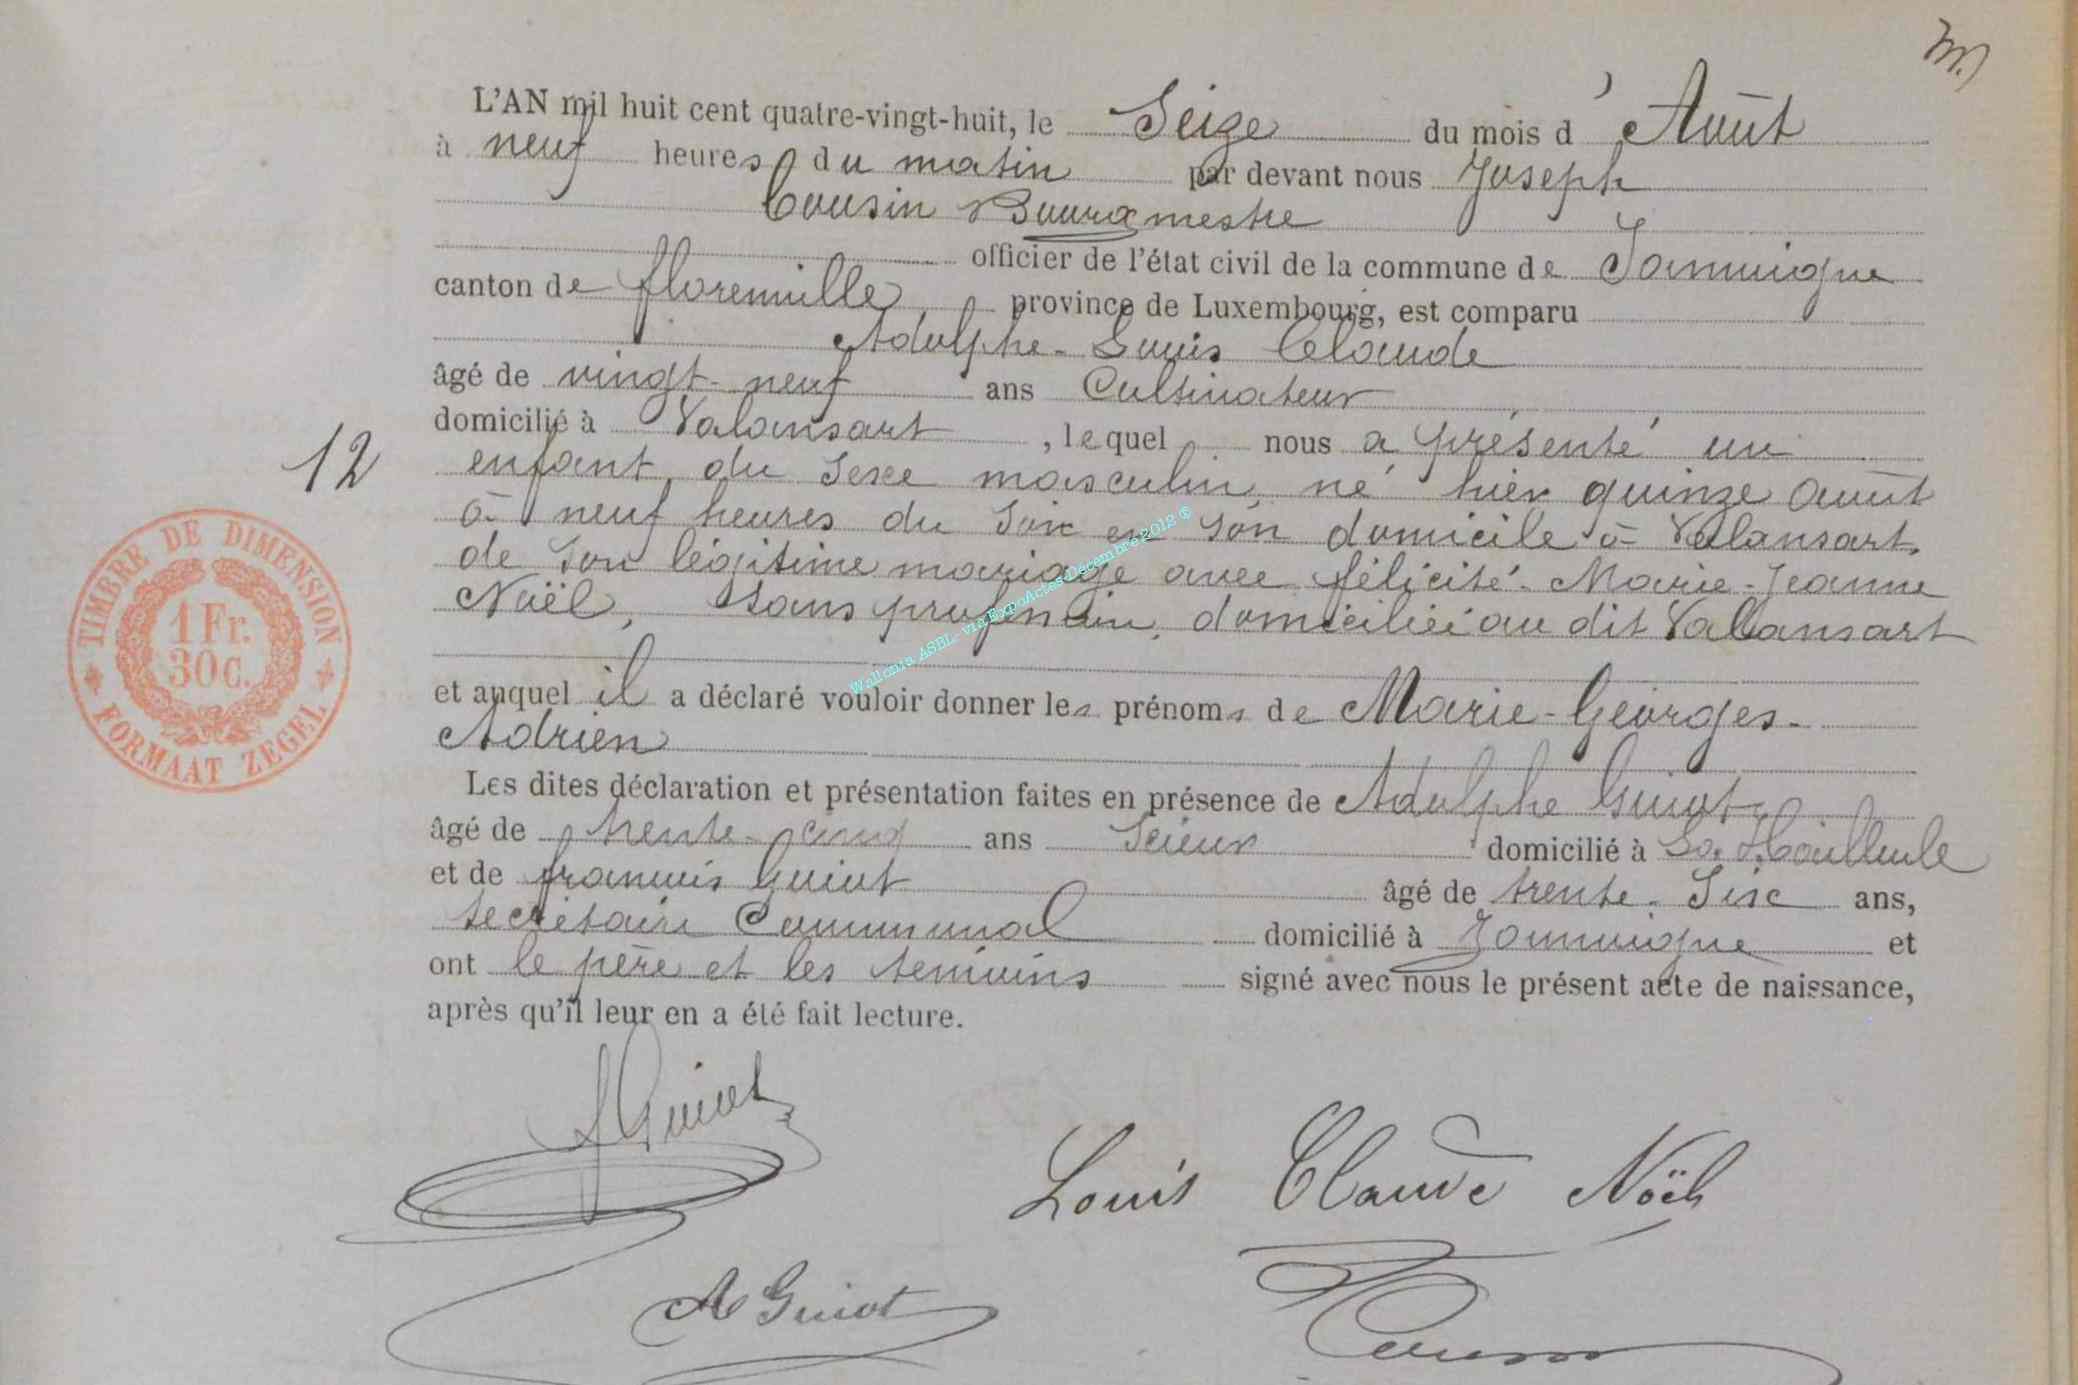 m.)
L'AN mil huit cent quatre-vingt-huit, le Seize du mois d'Août
à neuf heures du matin par devant nous Joseph
Cousin Bourgmestre
officier de l'état civil de la commune de Jamoigne
canton de florenville province de Luxembourg, est comparu
Adolphe-Louis Claude
âgé de vingt-neuf ans Cultivateur
domicilié à Valansart, lequel nous a présenté un
12
enfant du Sexe masculin, né hier quinze Août
à neuf heures du Soir en Son domicile à Valansart,
de Son légitime mariage avec félicité-Marie-Jeanne
Noël, Sans profession, domiciliée au dit Valansart
et auquel il a déclaré vouloir donner les prénoms de Marie-Georges-
Adrien
Les dites déclaration et présentation faites en présence de Adolphe Guiot
âgé de trente-cinq ans Scieur domicilié à La Hailleule
et de françois Guiot âgé de trente-Six ans,
Secrétaire Communal domicilié à Jamoigne et
ont le père et les témoins signé avec nous le présent acte de naissance,
après qu'il leur en a été fait lecture.
TIMBRE DE DIMENSION
1 Fr.
30c.
FORMAAT ZEGEL
Wallonia ASBL - via ExpoActes Décembre 2012 ®
Guiot
Louis Claude Noël
A Guiot
Cousin